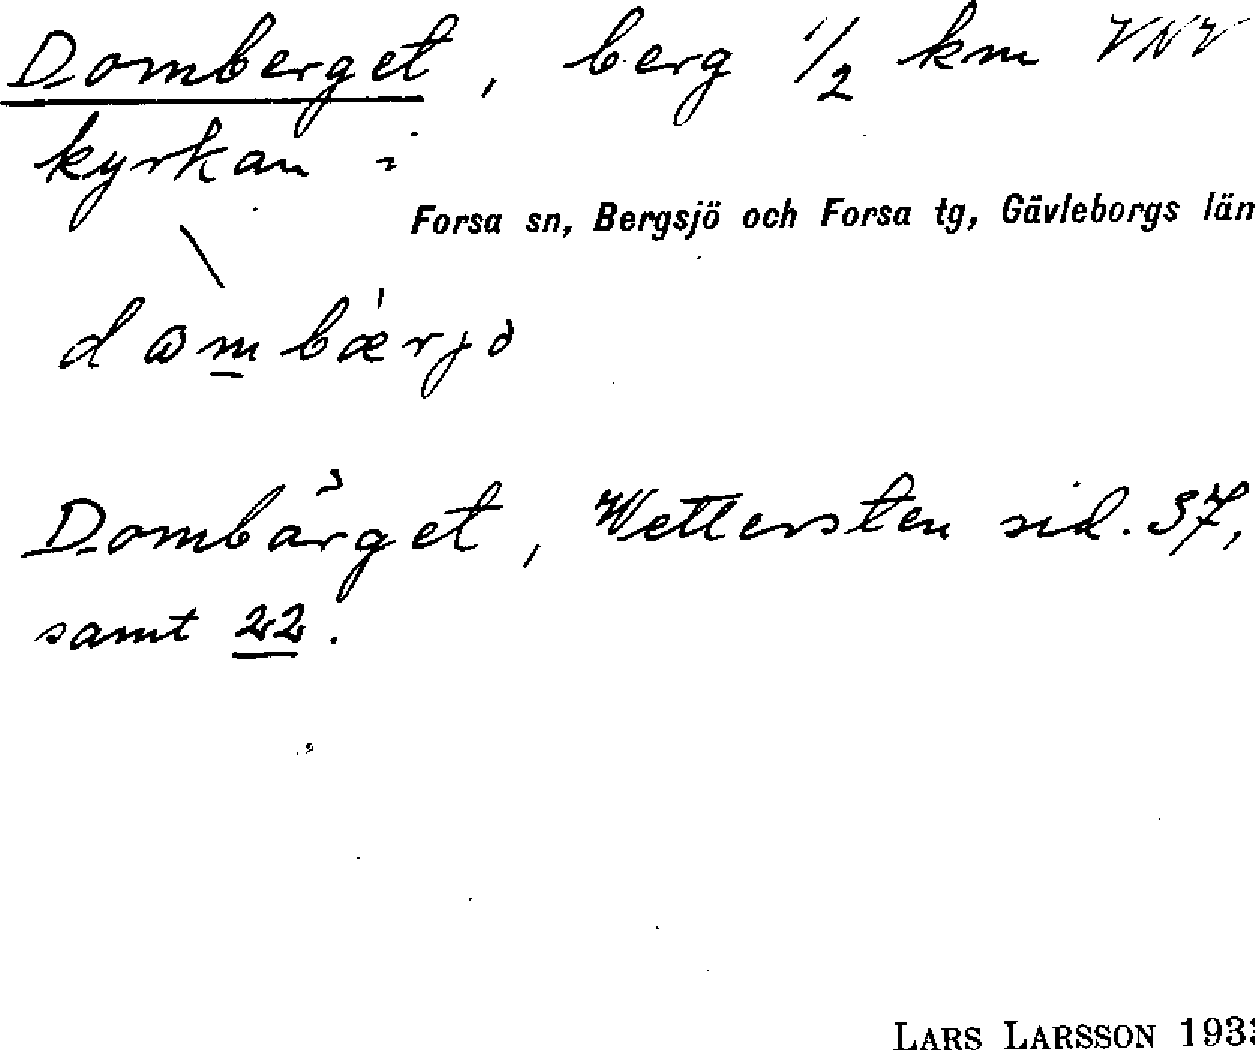 Domberget, berg 1/2 km VNV
kyrkan i
Forsa sn, Bergsjö och Forsa tg, Gävleborgs län
Dombärget, Wettersten sid. 37,
samt 22.
LARS LARSSON